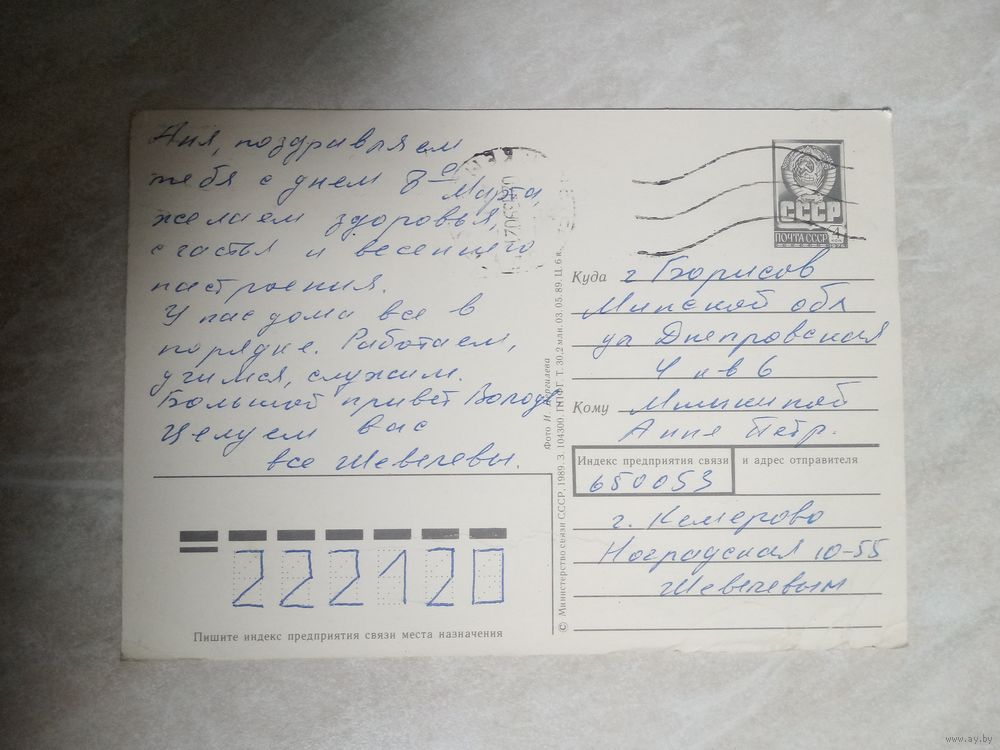 Аня, поздравляем
тебя с днем 8-е Марта,
желаем здоровья,
счастья и весеннего
настроения.
У нас дома все в
порядке. Работаем,
учимся, служим.
Большой привет Володе
Целуем вас
все Шевелевы.
222120
Пишите индекс предприятия связи места назначения
© Министерство связи СССР, 1989. З. 104300. ППФГ. Т. 30,2 млн. 03.05.89. Ц. 6 к.
Фото И.
СССР
ПОЧТА СССР 4
Куда г Борисов
Минской обл
ул Днепровская
4 кв 6
Кому
Анне Петр.
Индекс предприятия связи и адрес отправителя
650053
г. Кемерово
Ноградская 10-55
Шевелевым
www.ay.by